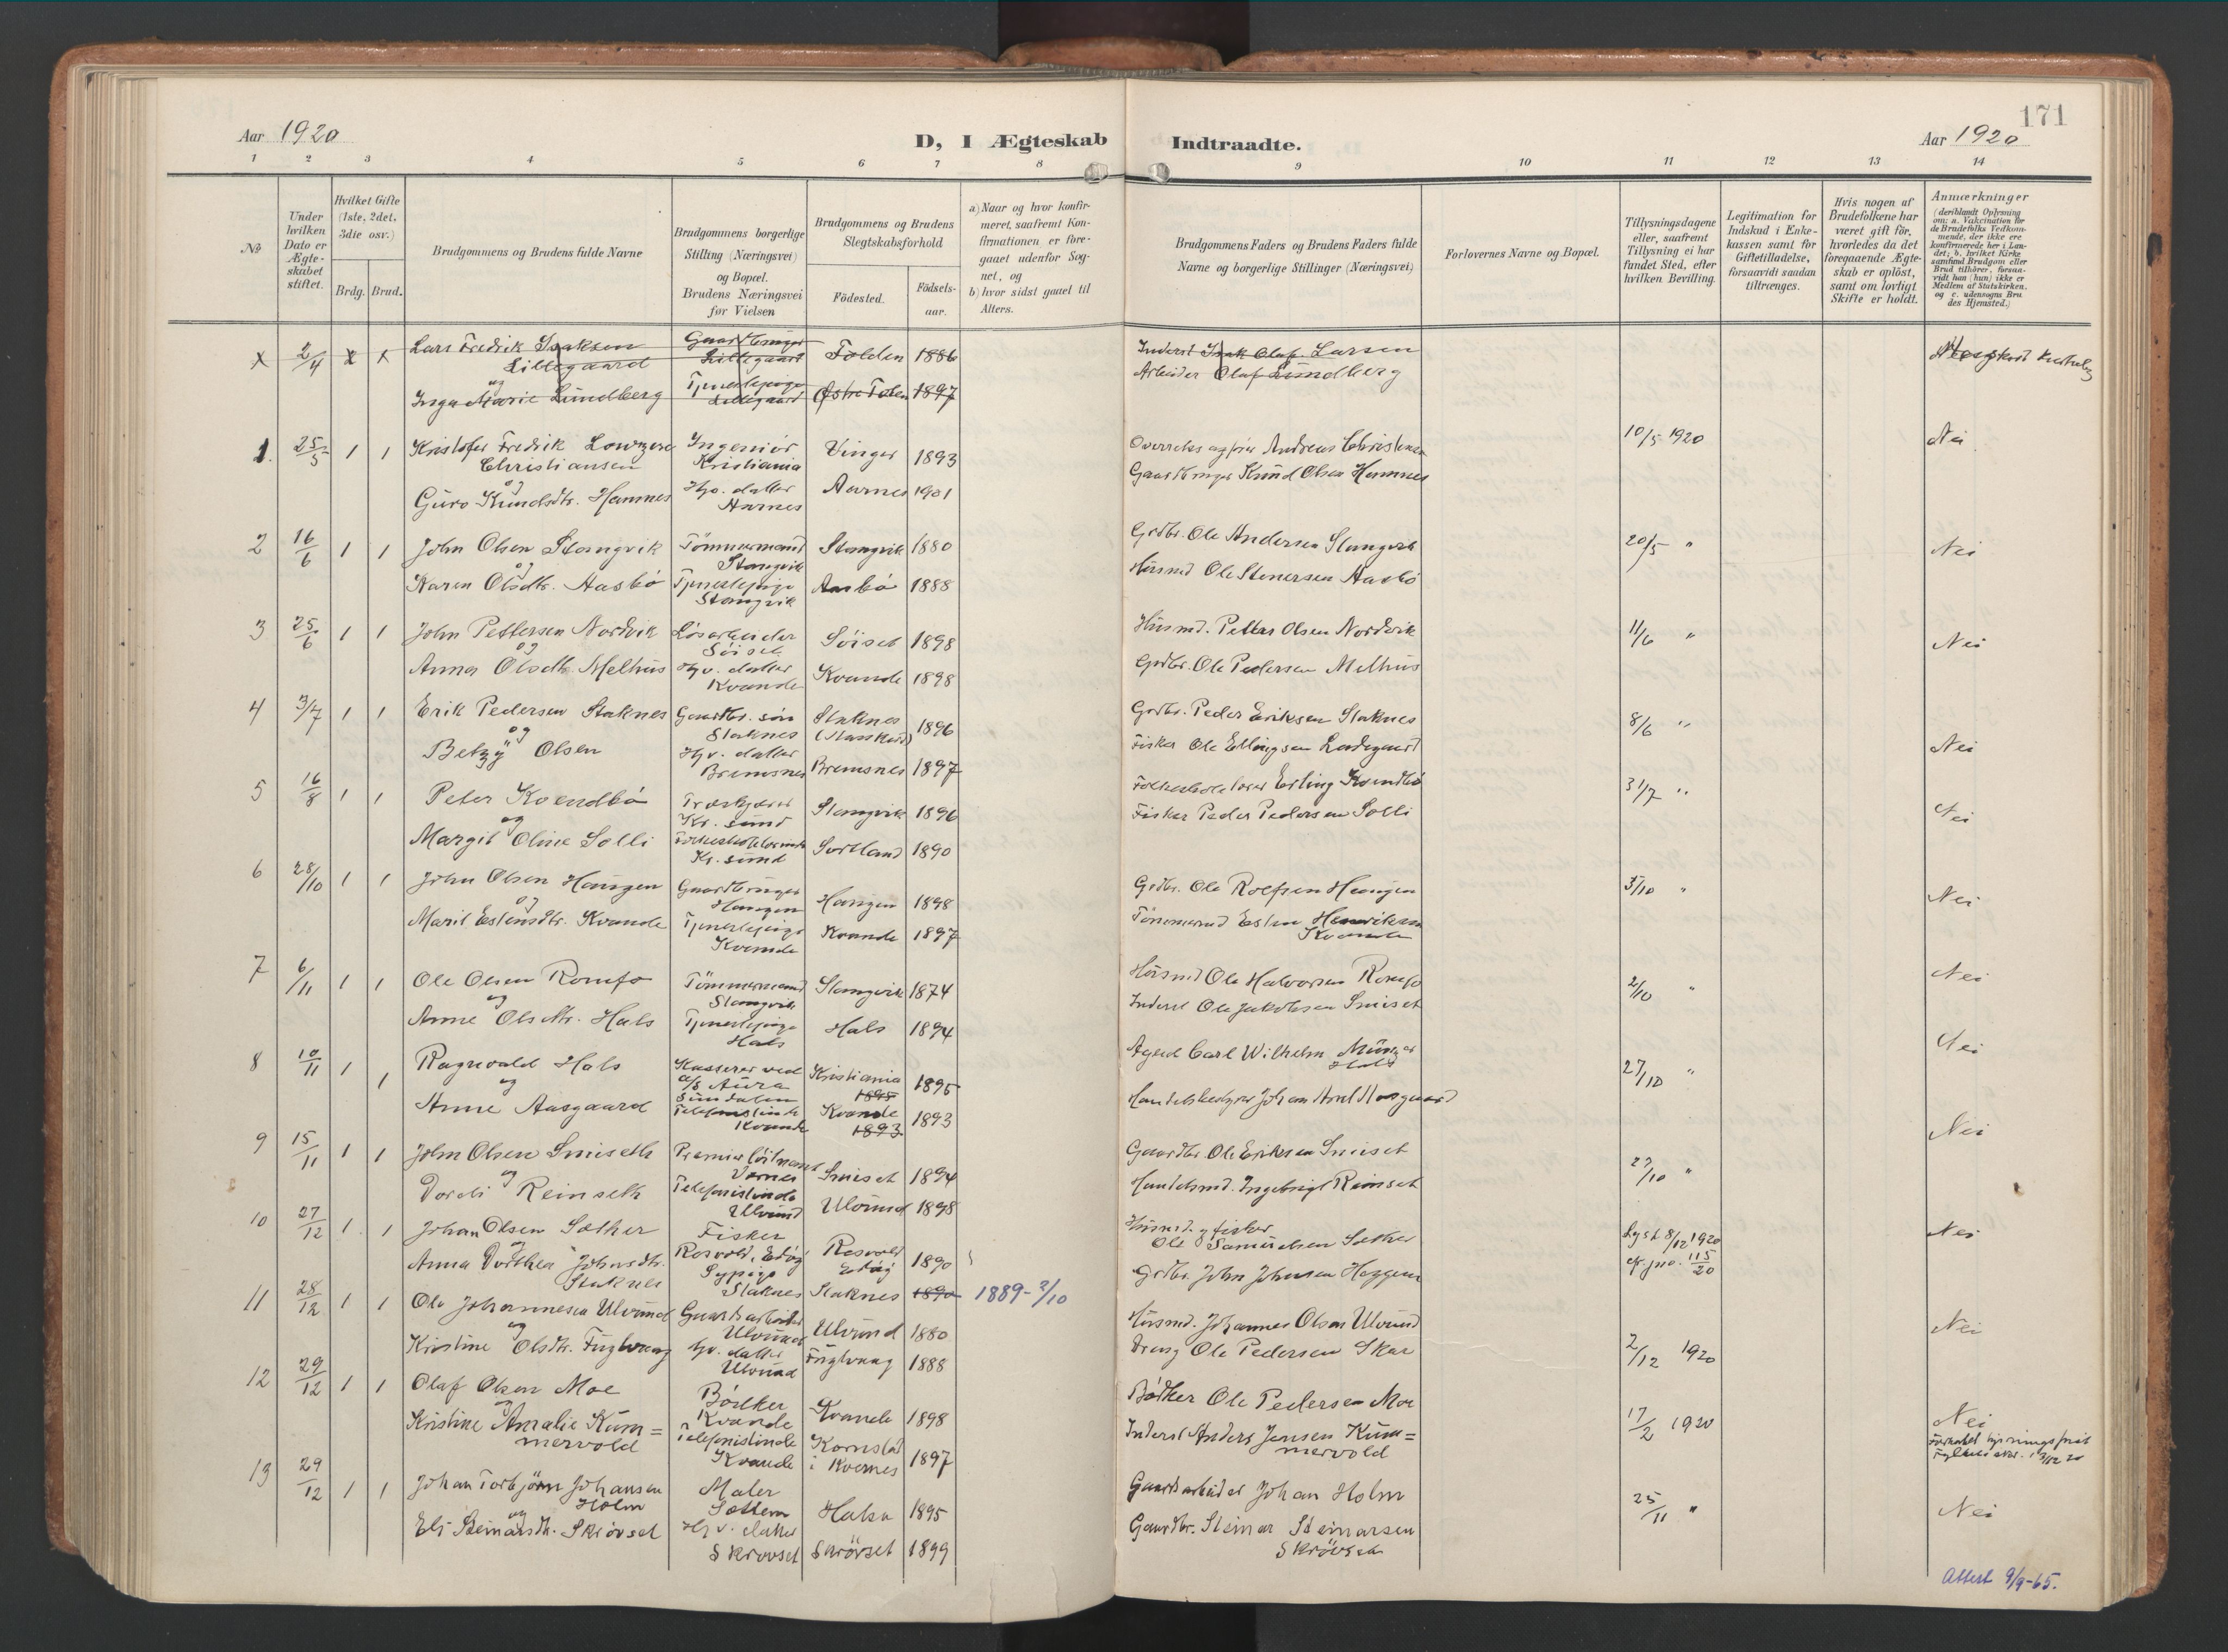 171
Aar 1920
D, I Ægteskab Indtraadte.
Aar 1920
1 2 3 4 5 6 7 8 9 10 11 12 13 14
No
Under hvilken Dato er Ægte-skabet stiftet.
Hvilket Gifte (1ste, 2det, 3die osv.)
Brdg. Brud.
Brudgommens og Brudens fulde Navne
Brudgommens borgerlige Stilling (Næringsvei) og Bopæl. Brudens Næringsvei før Vielsen
Brudgommens og Brudens Slegtskabsforhold
Födested. Födsels-aar.
a) Naar og hvor konfir-meret, saafremt Kon-firmationen er fore-gaaet udenfor Sog-net, og
b) hvor sidst gaaet til Alters.
Brudgommens Faders og Brudens Faders fulde Navne og borgerlige Stillinger (Næringsvei)
Forlovernes Navne og Bopæl.
Tillysningsdagene eller, saafremt Tillysning ei har fundet Sted, efter hvilken Bevilling.
Legitimation for Indskud i Enke-kassen samt for Giftetilladelse, forsaavidt saadan tiltrænges.
Hvis nogen af Brudefolkene har været gift før, hvorledes da det foregaaende Ægte-skab er oplöst, samt om lovligt Skifte er holdt.
Anmærkninger
(deriblandt Oplysning om: a. Vakcination for de Brudefolks Vedkom-mende, der ikke ere konfirmerede her i Lan-det; b. hvilket Kirke samfund Brudgom eller Brud tilhörer, forsaa-vidt han (hun) ikke er Medlem af Statskirken. og c. udensogns Bru des Hjemsted.)
x 2/4 x x Lars Fredrik Isaksen Gaardbruger Folden 1886 Inderst Isak Olaf. Larsen
Lillegaard Lillegaard Arbeider Olaf Lundberg
og
Inga Marie Lundberg Tjenestepige Østre Toten 1897
Lillegaard
1. 25/5 1 1 Kristofer Fredrik Ingeniör Vinger 1893 Andreas Christensen 10/5 1920 Nei
Christiansen Kristiania
og
Guro Knudsdtr. Hamnes Hjv. datter Aarnes 1901 Gaardbruger Knud Olsen Hamnes
Aarnes
2 16/6 1 1 John Olsen Stangvik Tömmermand Stangvik 1880 Grdbr. Ole Andersen Stangvik 20/5 " Nei
og Stangvik
Karen Olsdtr. Aasbö Tjenestepige Aasbö 1888 Husmd Ole Stenersen Aasbö
Stangvik
3 25/6 1 1 John Pettersen Nordvik Lösarbeider Söiset 1898 Husmd. Petter Olsen Nordvik 11/6 " Nei
og Söiset
Anna Olsdtr. Melhus Hjv. datter Kvande 1898 Grdbr. Ole Pedersen Melhus
Kvande
4 3/7 1 1 Erik Pedersen Staknes Gaardbr. sön Staknes 1896 Grdbr. Peder Eriksen Staknes 8/6 " Nei
og Staknes
Betzy Olsen Hjv. datter Bremsnes 1897 Fisker Ole Ellingsen Ladegaard
Bremsnes
5 16/8 1 1 Peter Kvendbö Stangvik 1896 Folkeskolelærer Erling Kvendbö 31/7 " Nei
og Kr. sund
Margit Oline Solli Folkeskolelærerinde Sortland 1890 Fisker Peder Pedersen Solli
Kr. sund
6 28/10 1 1 John Olsen Haugen Gaardbruger Haugen 1898 Grdbr. Ole Rolfsen Haugen 3/10 " Nei
og Haugen
Marit Estensdtr. Kvande Tjenestepige Kvande 1897 Tömmermd Esten Henriksen
Kvande Kvande
7 6/11 1 1 Ole Olsen Romfo Tömmermand Stangvik 1874 Husmd Ole Halvorsen Romfo 2/10 " Nei
og Stangvik
Anne Olsdtr. Hals Tjenestepige Hals 1894 Inderst Ole Jakobsen Smiset
Hals
8 10/11 1 1 Ragnvald Hals Kasserer ved Kristiania 1895 Agent Carl Wilhelm 27/10 " Nei
og a/s Aura 1895 Hals
Sundalen
Anne Aasgaard Telefonistinde Kvande 1893 Johan Aasgaard
Kvande 1893
9 15/11 1 1 John Olsen Smiseth Premierlöitnant Smiset 1894 Gaardbr. Ole Eriksen Smiset 27/10 " Nei
og Værnes
Dordi Reinseth Telefonistinde Ulvund 1898 Handelsmd. Ingebrigt Reinset
Ulvund
10 27/12 1 1 Johan Olsen Sæther Fisker Rosvold 1890 Husmd. og fisker Lyst 8/12 1920 Nei
og Rosvold, Edöy Edöy Ole Samuelsen Sæther cfr. jno. 115/20
Anna Dorthea Johnsdtr. Sypige Staknes 1890 1889 - 2/10 Grdbr. John Johnsen Hoggem
Staknes Staknes
11 28/12 1 1 Ole Johannesen Ulvund Gaardsarbeider Ulvund 1880 Husmd. Johannes Olsen Ulvund 2/12 1920 Nei
og Ulvund
Kristine Olsdtr. Fuglvaag hjv. datter Fuglvaag 1888 Ole Pedersen Skar
Ulvund
12 29/12 1 1 Olaf Olsen Moe Bödker Kvande 1898 Bödker Ole Pedersen Moe 17/2 1920 Nei
og Kvande
Kristine Amalie Kum= Telefonistinde Kornstad 1897 Inderst Anders Jensen Kum=
mervold Kvande i Kvernes mervold
13 29/12 1 1 Johan Torbjörn Johansen Maler Halsa 1895 Gaardsarbeider Johan Holm 25/11 " Nei
Holm Settem
og
Eli Steinarsdtr. Skrövset Hjv. datter Skrövset 1899 Gaardbr. Steinar Steinarsen
Skrövset Skrövset
Attest 9/9-65.